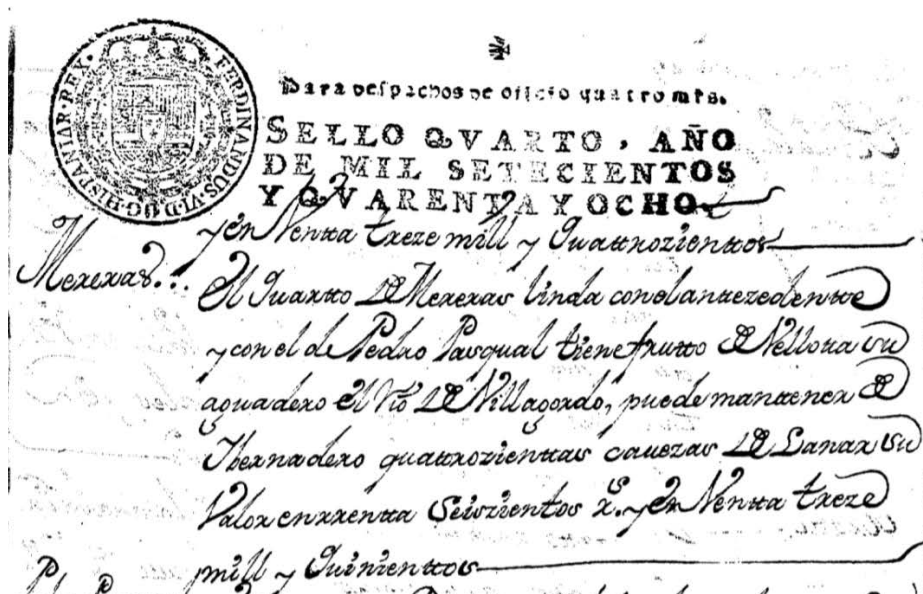 FERDINANDUS·VI·D·G·HISPANIAR·REX·
Para despachos de oficio quatro mrs.
SELLO QVARTO, AÑO
DE MIL SETECIENTOS
Y QVARENTA Y OCHO
y en Ventta treze mill y Quattrozienttos
Mereras...
El Quartto de Mereras linda con el anttezedentte
y con el de Pedro Pasqual tiene frutto de Vellotta su
aguadero el Rio de Villagordo, puede manttener de
Ybernadero quattrozienttas cauezas de Lanar su
Valor en rrentta Seiszientos rs. y en Ventta treze
mill y Quinienttos